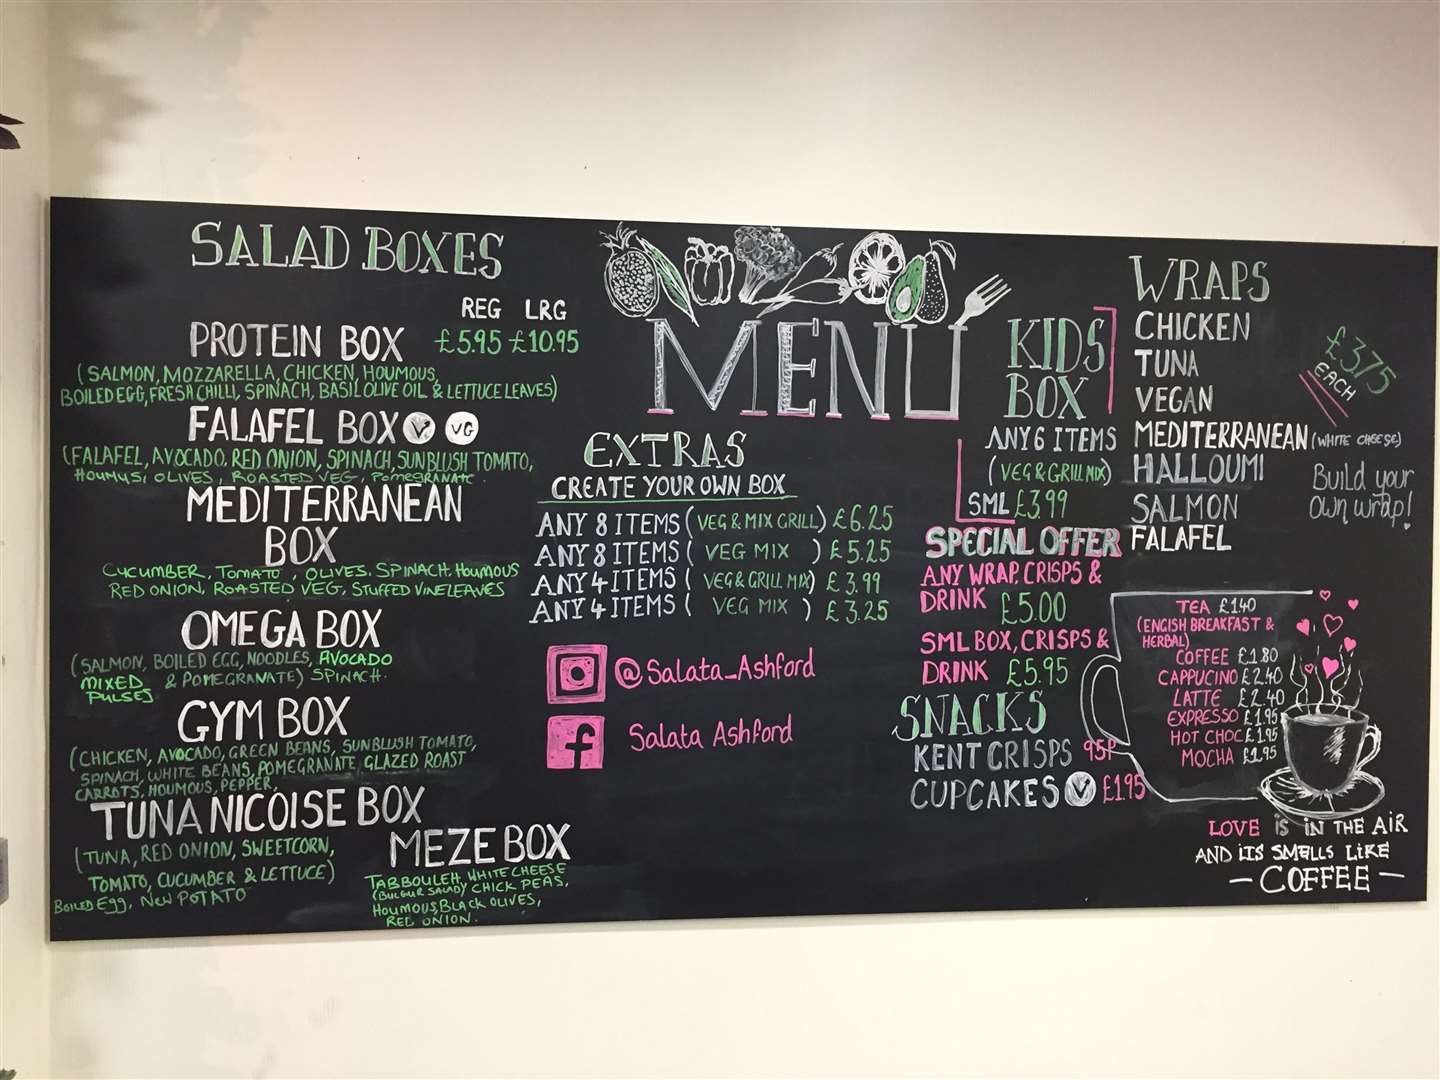 SALAD BOXES
REG LRG
PROTEIN BOX £5.95 £10.95
(SALMON, MOZZARELLA, CHICKEN, HOUMOUS,
BOILED EGG, FRESH CHILLI, SPINACH, BASIL OLIVE OIL & LETTUCE LEAVES)
FALAFEL BOX V VG
(FALAFEL, AVOCADO, RED ONION, SPINACH, SUNBLUSH TOMATO,
HOUMUS, OLIVES, ROASTED VEG, POMEGRANATE.
MEDITERRANEAN
BOX
CUCUMBER, TOMATO, OLIVES. SPINACH, HOUMOUS
RED ONION, ROASTED VEG, STUFFED VINE LEAVES
OMEGA BOX
(SALMON, BOILED EGG, NOODLES, AVOCADO
MIXED & POMEGRANATE) SPINACH.
PULSES
GYM BOX
(CHICKEN, AVOCADO, GREEN BEANS, SUNBLUSH TOMATO,
SPINACH, WHITE BEANS, POMEGRANATE GLAZED ROAST
CARROTS, HOUMOUS, PEPPER,
TUNA NICOISE BOX
(TUNA, RED ONION, SWEETCORN,
TOMATO, CUCUMBER & LETTUCE)
BOILED EGG, NEW POTATO
MEZE BOX
TABBOULEH, WHITE CHEESE
(BULGUR SALAD) CHICK PEAS,
HOUMOUS, BLACK OLIVES,
RED ONION.
MENU
EXTRAS
CREATE YOUR OWN BOX
ANY 8 ITEMS (VEG & MIX GRILL) £6.25
ANY 8 ITEMS ( VEG MIX ) £5.25
ANY 4 ITEMS (VEG & GRILL MIX) £3.99
ANY 4 ITEMS ( VEG MIX ) £3.25
@Salata_Ashford
f Salata Ashford
KIDS
BOX
ANY 6 ITEMS
(VEG & GRILL MIX)
SML £3.99
SPECIAL OFFER
ANY WRAP, CRISPS &
DRINK £5.00
SML BOX, CRISPS &
DRINK £5.95
SNACKS
KENT CRISPS 95P
CUPCAKES V £1.95
WRAPS
CHICKEN
TUNA
VEGAN
MEDITERRANEAN (WHITE CHEESE)
HALLOUMI
SALMON
FALAFEL
£3.75
EACH
Build your
own wrap!
TEA £1.40
(ENGISH BREAKFAST &
HERBAL)
COFFEE £1.80
CAPPUCINO £2.40
LATTE £2.40
EXPRESSO £1.95
HOT CHOC £1.95
MOCHA £1.95
LOVE IS IN THE AIR
AND ITS SMELLS LIKE
- COFFEE -